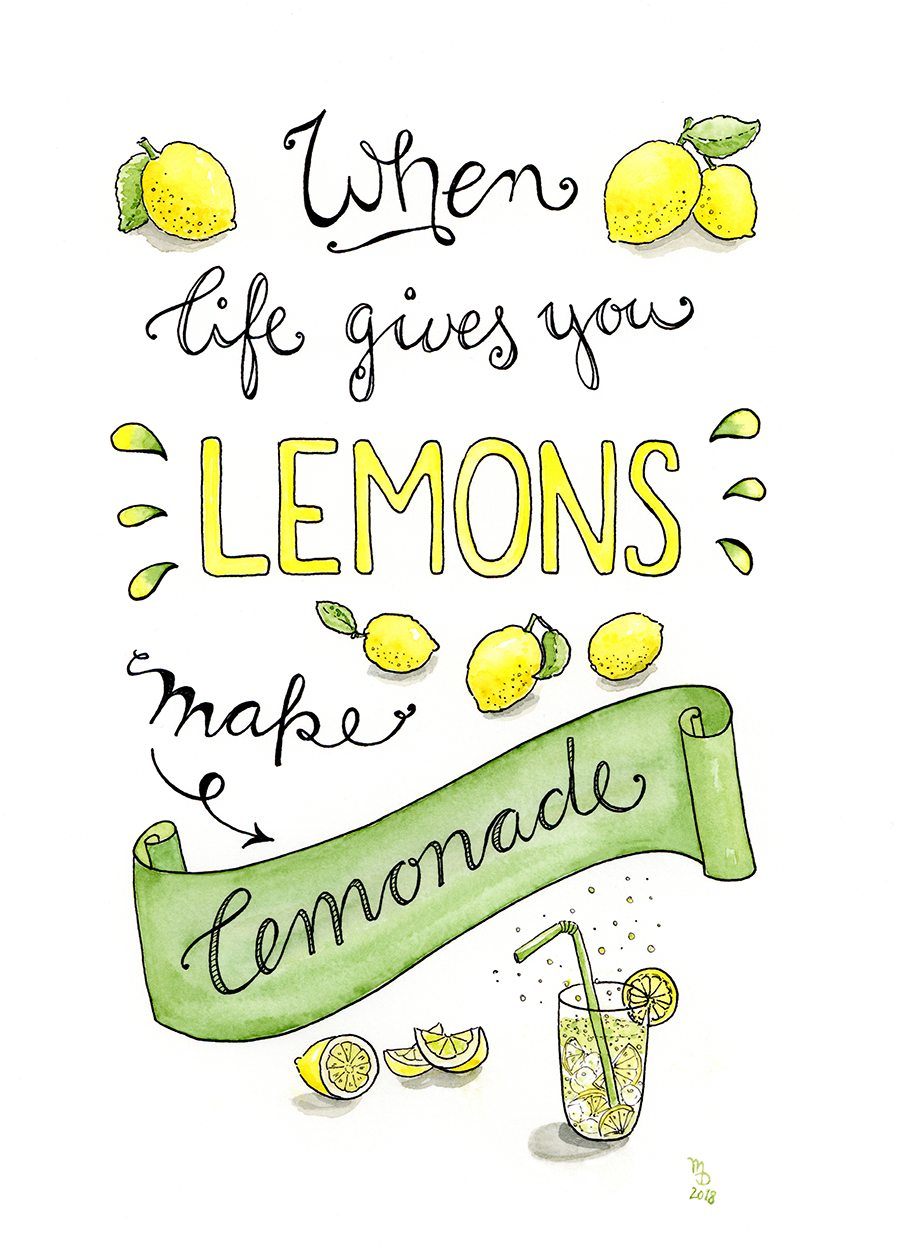 When
life gives you
LEMONS
make
lemonade
MD
2018